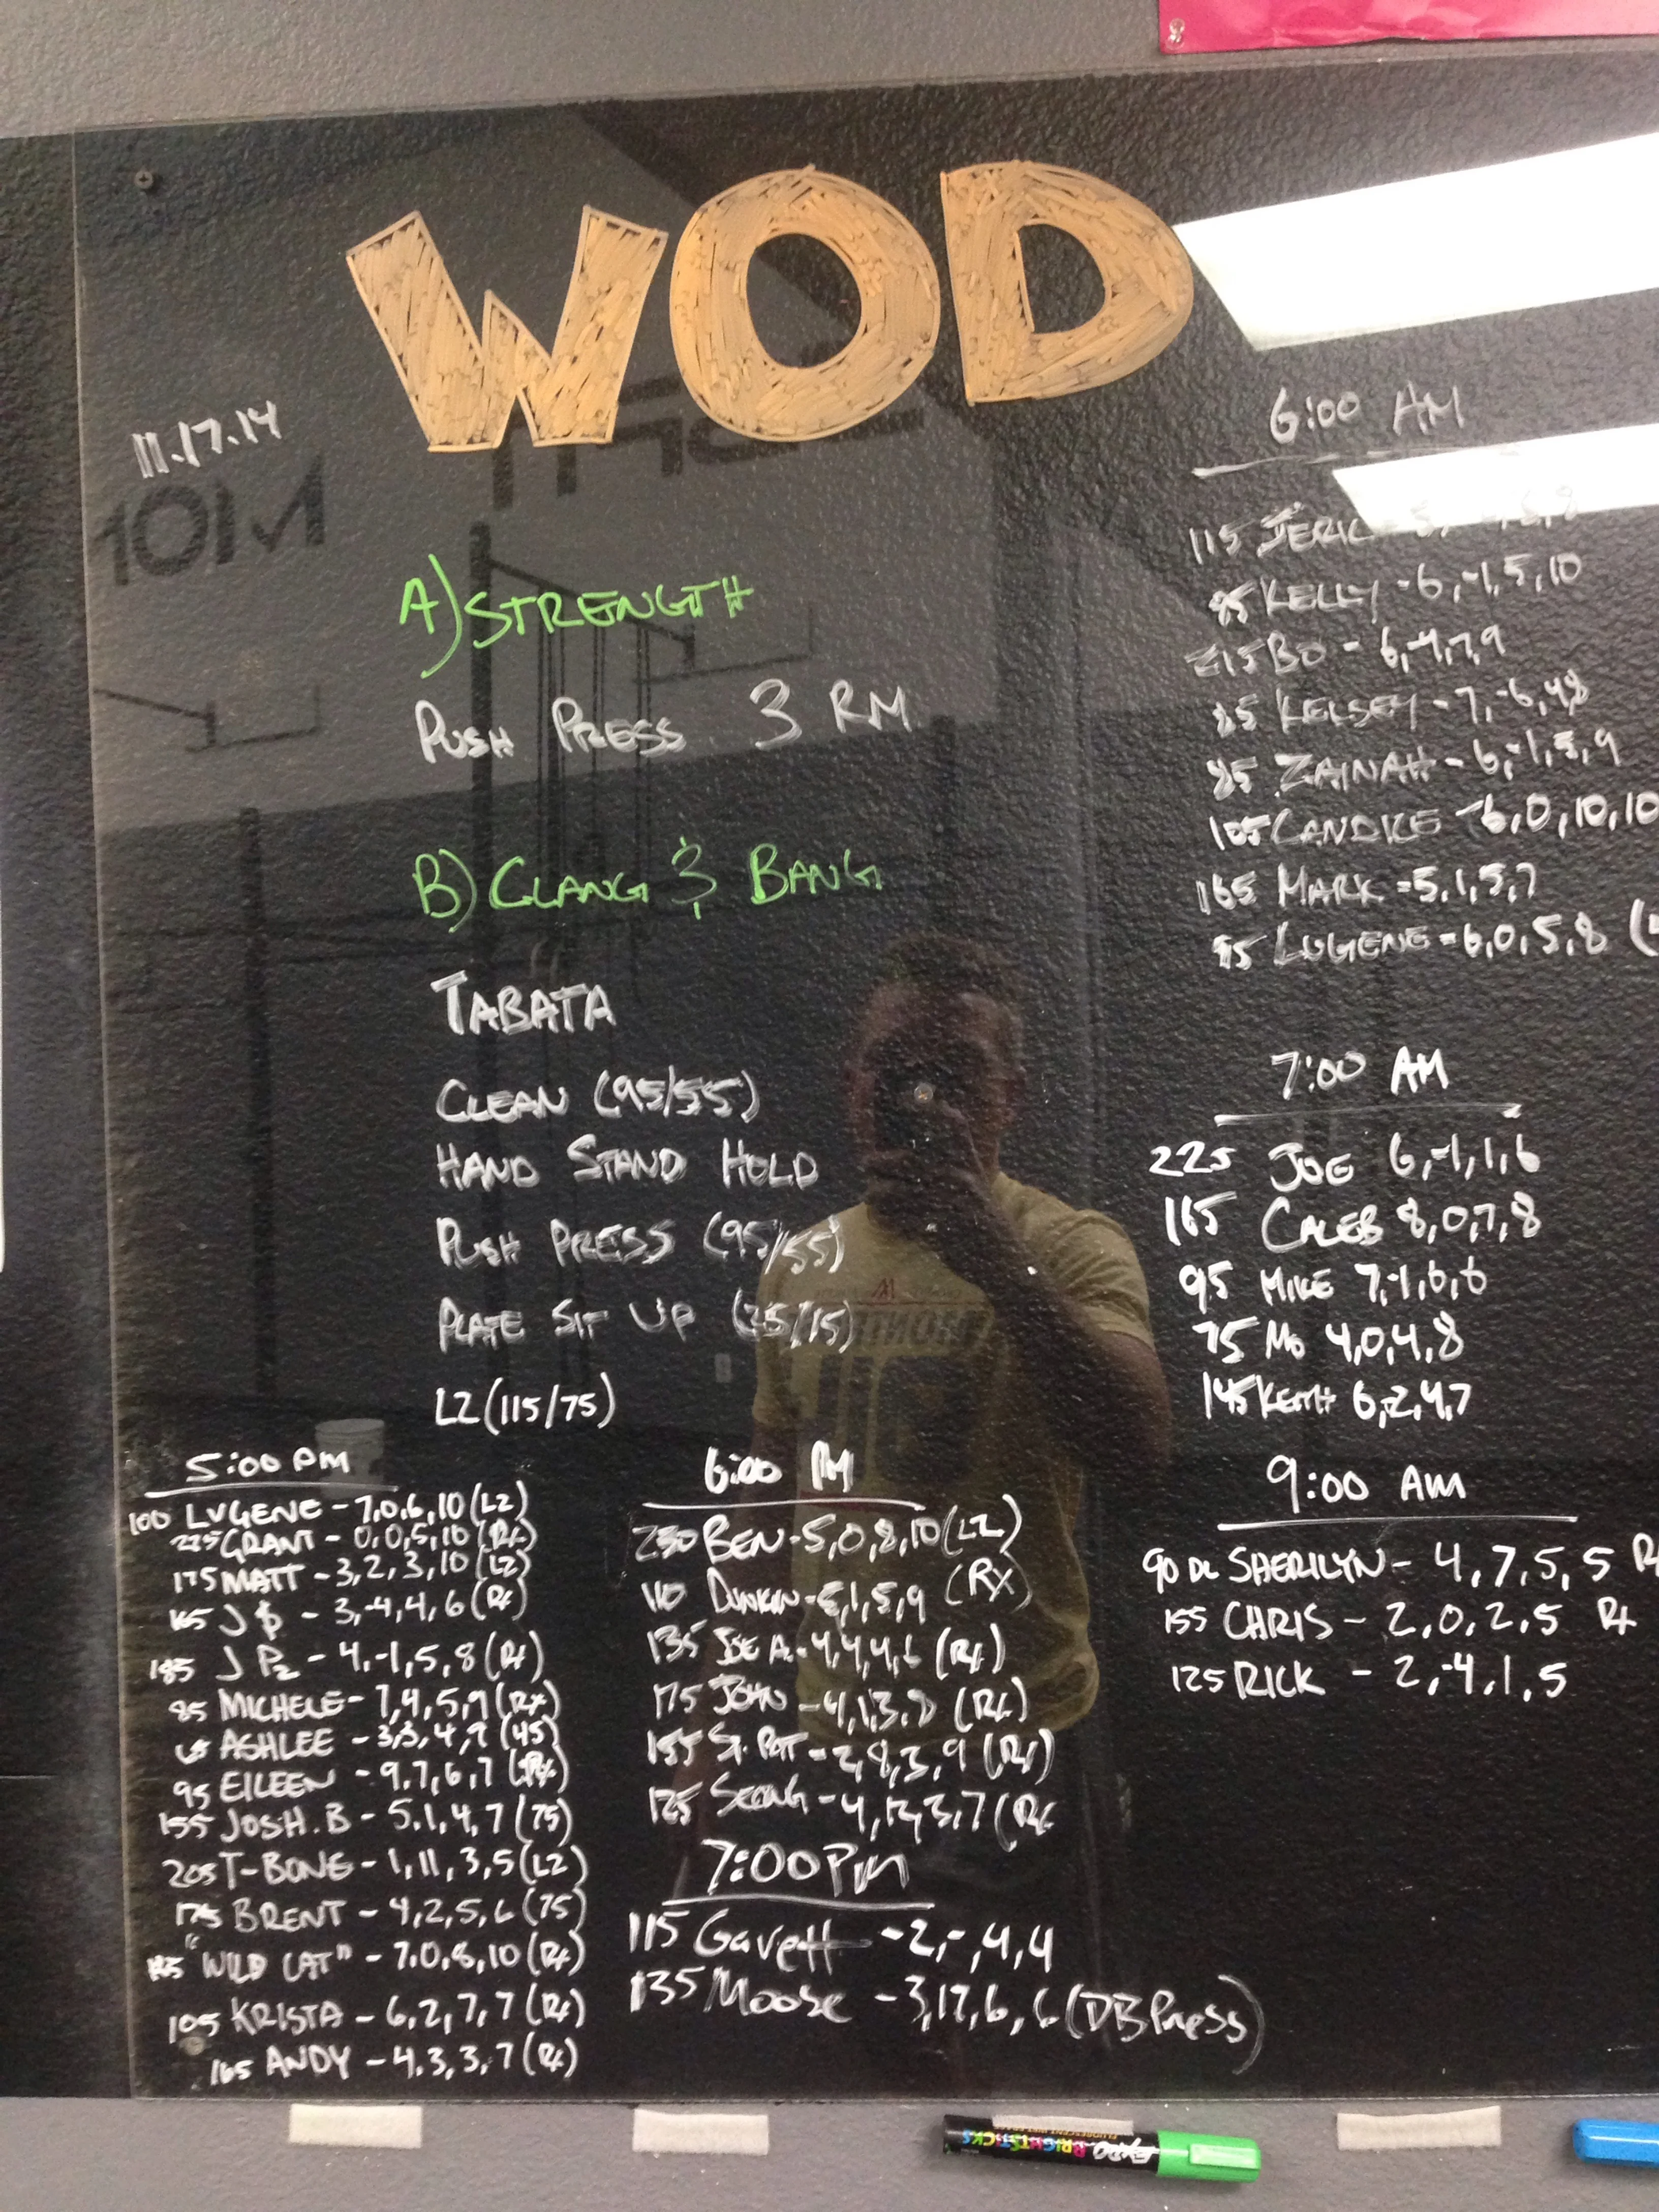 WOD
11.17.14
A) STRENGTH
PUSH PRESS 3 RM
B) CLANG & BANG
TABATA
CLEAN (95/55)
HAND STAND HOLD
PUSH PRESS (95/55)
PLATE SIT UP (25/15)
L2 (115/75)
5:00 PM
100 LUGENE - 7,0,6,10 (L2)
225 GRANT - 0,0,5,10 (Rx)
175 MATT - 3,2,3,10 (L2)
165 J $ - 3,-4,4,6 (Rx)
185 J P2 - 4,-1,5,8 (Rx)
85 MICHELE - 7,4,5,9 (Rx)
65 ASHLEE - 3,3,4,9 (45)
95 EILEEN - 9,7,6,7 (Rx)
155 JOSH.B - 5,1,4,7 (75)
205 T-BONE - 1,11,3,5 (L2)
175 BRENT - 4,2,5,6 (75)
"WILD CAT" - 7,0,8,10 (Rx)
105 KRISTA - 6,2,7,7 (Rx)
165 ANDY - 4,3,3,7 (Rx)
6:00 PM
230 BEN - 5,0,8,10 (L2)
110 DUNKIN - 5,1,5,9 (Rx)
135 JOE A. - 4,4,4,6 (Rx)
175 JOHN - 4,1,3, (Rx)
155 ,8,3,9 (Rx)
- 4,12,3,7 (Rx
7:00 PM
115 Gavett - 2,-,4,4
135 Moose - 3,17,6,6 (DB Press)
6:00 AM
115 JERIC
95 KELLY - 6,-1,5,10
215 BO - 6,-4,7,9
85 KELSEY - 7,-6,4,8
85 ZAINAH - 6,-1,5,9
105 CANDICE - 6,0,10,10
165 MARK = 5,1,5,7
95 LUGENE = 6,0,5,8 (
7:00 AM
225 JOE 6,-1,1,6
165 CALEB 8,0,7,8
95 MIKE 7,-1,6,6
75 MO 4,0,4,8
145 KEITH 6,2,4,7
9:00 AM
90 DL SHERILYN - 4,7,5,5
155 CHRIS - 2,0,2,5 Rx
125 RICK - 2,-4,1,5
EXPO BRIGHTSTICKS